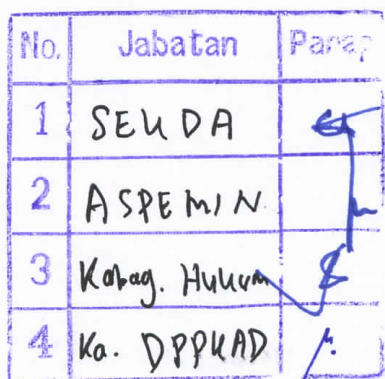 No. Jabatan Paraf
1 SEKDA
2 ASPEMIN
3 Kabag. Hukum
4 Ka. DPPKAD